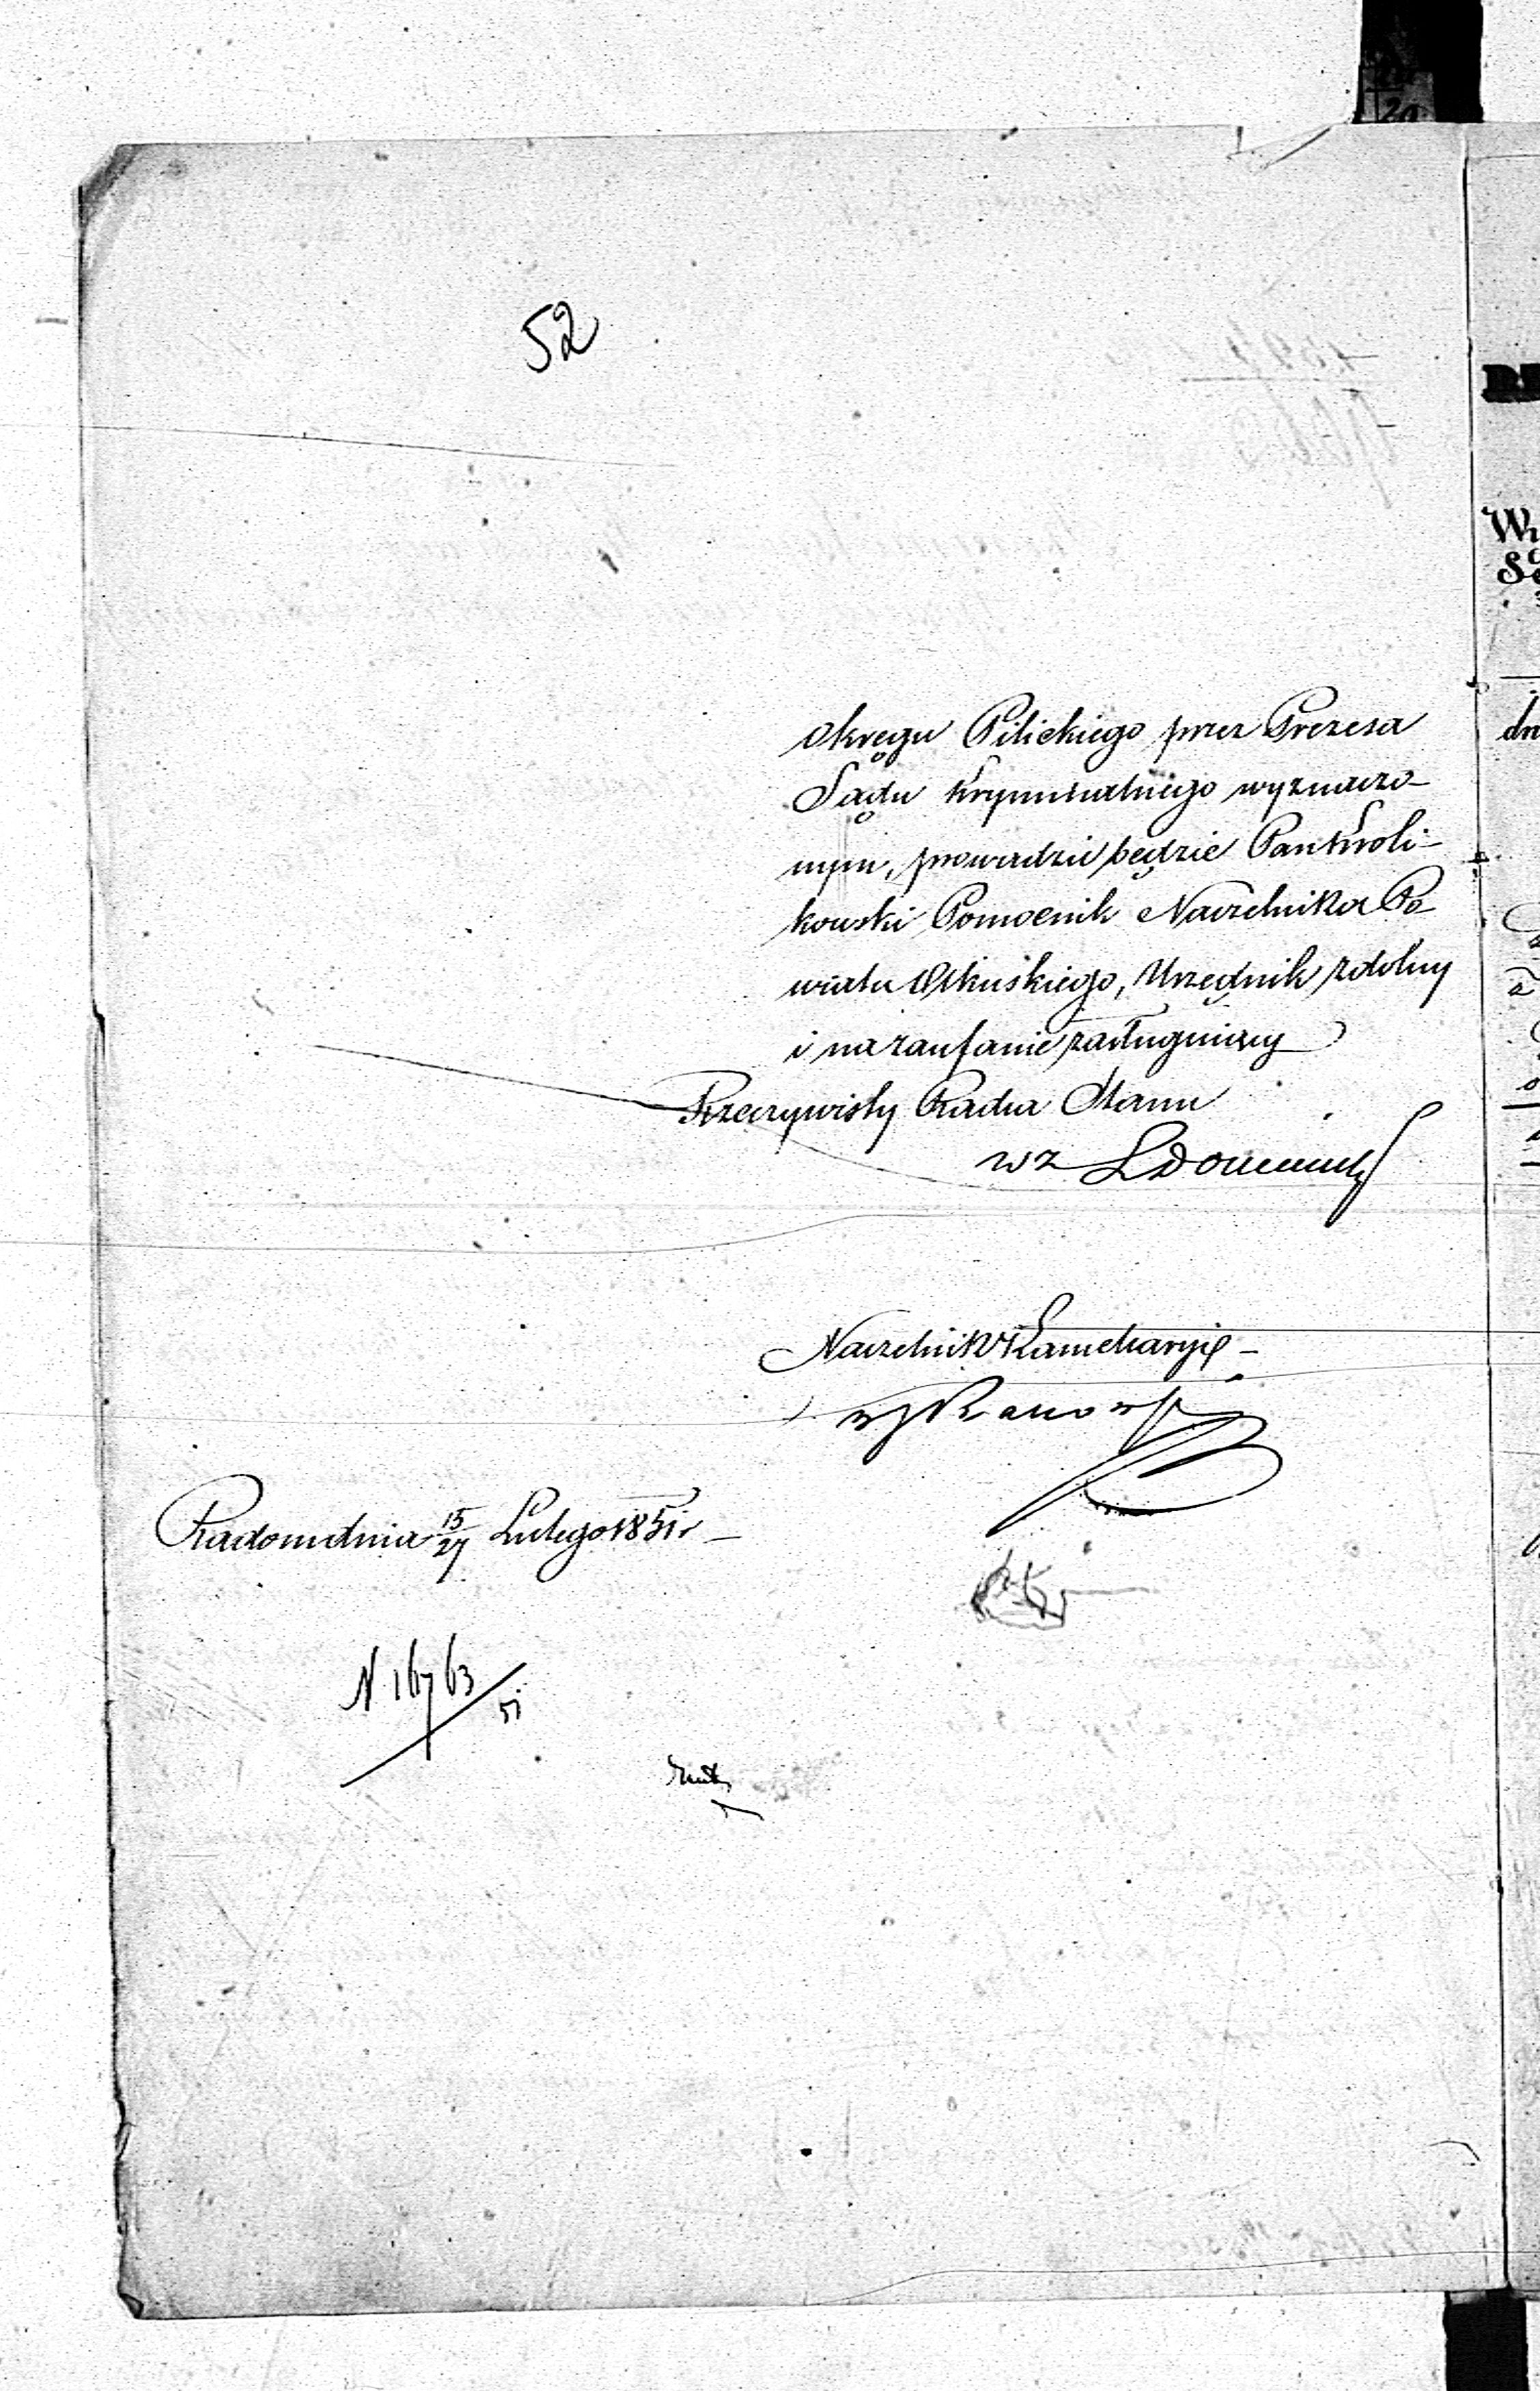 52
Okręgu Pilickiego przez Prezesa
Sądu Kryminalnego wyznaczo-
nym, prowadzić będzie Pan Króli-
kowski Pomocnik Naczelnika Po-
wiatu Olkuskiego, Urzędnik zdolny
i na zaufanie zasługujący
Rzeczywisty Radca Stanu
wz
Naczelnik Kancelaryi
Radom dnia 15/27 Lutego 1851 r
N 16763/51